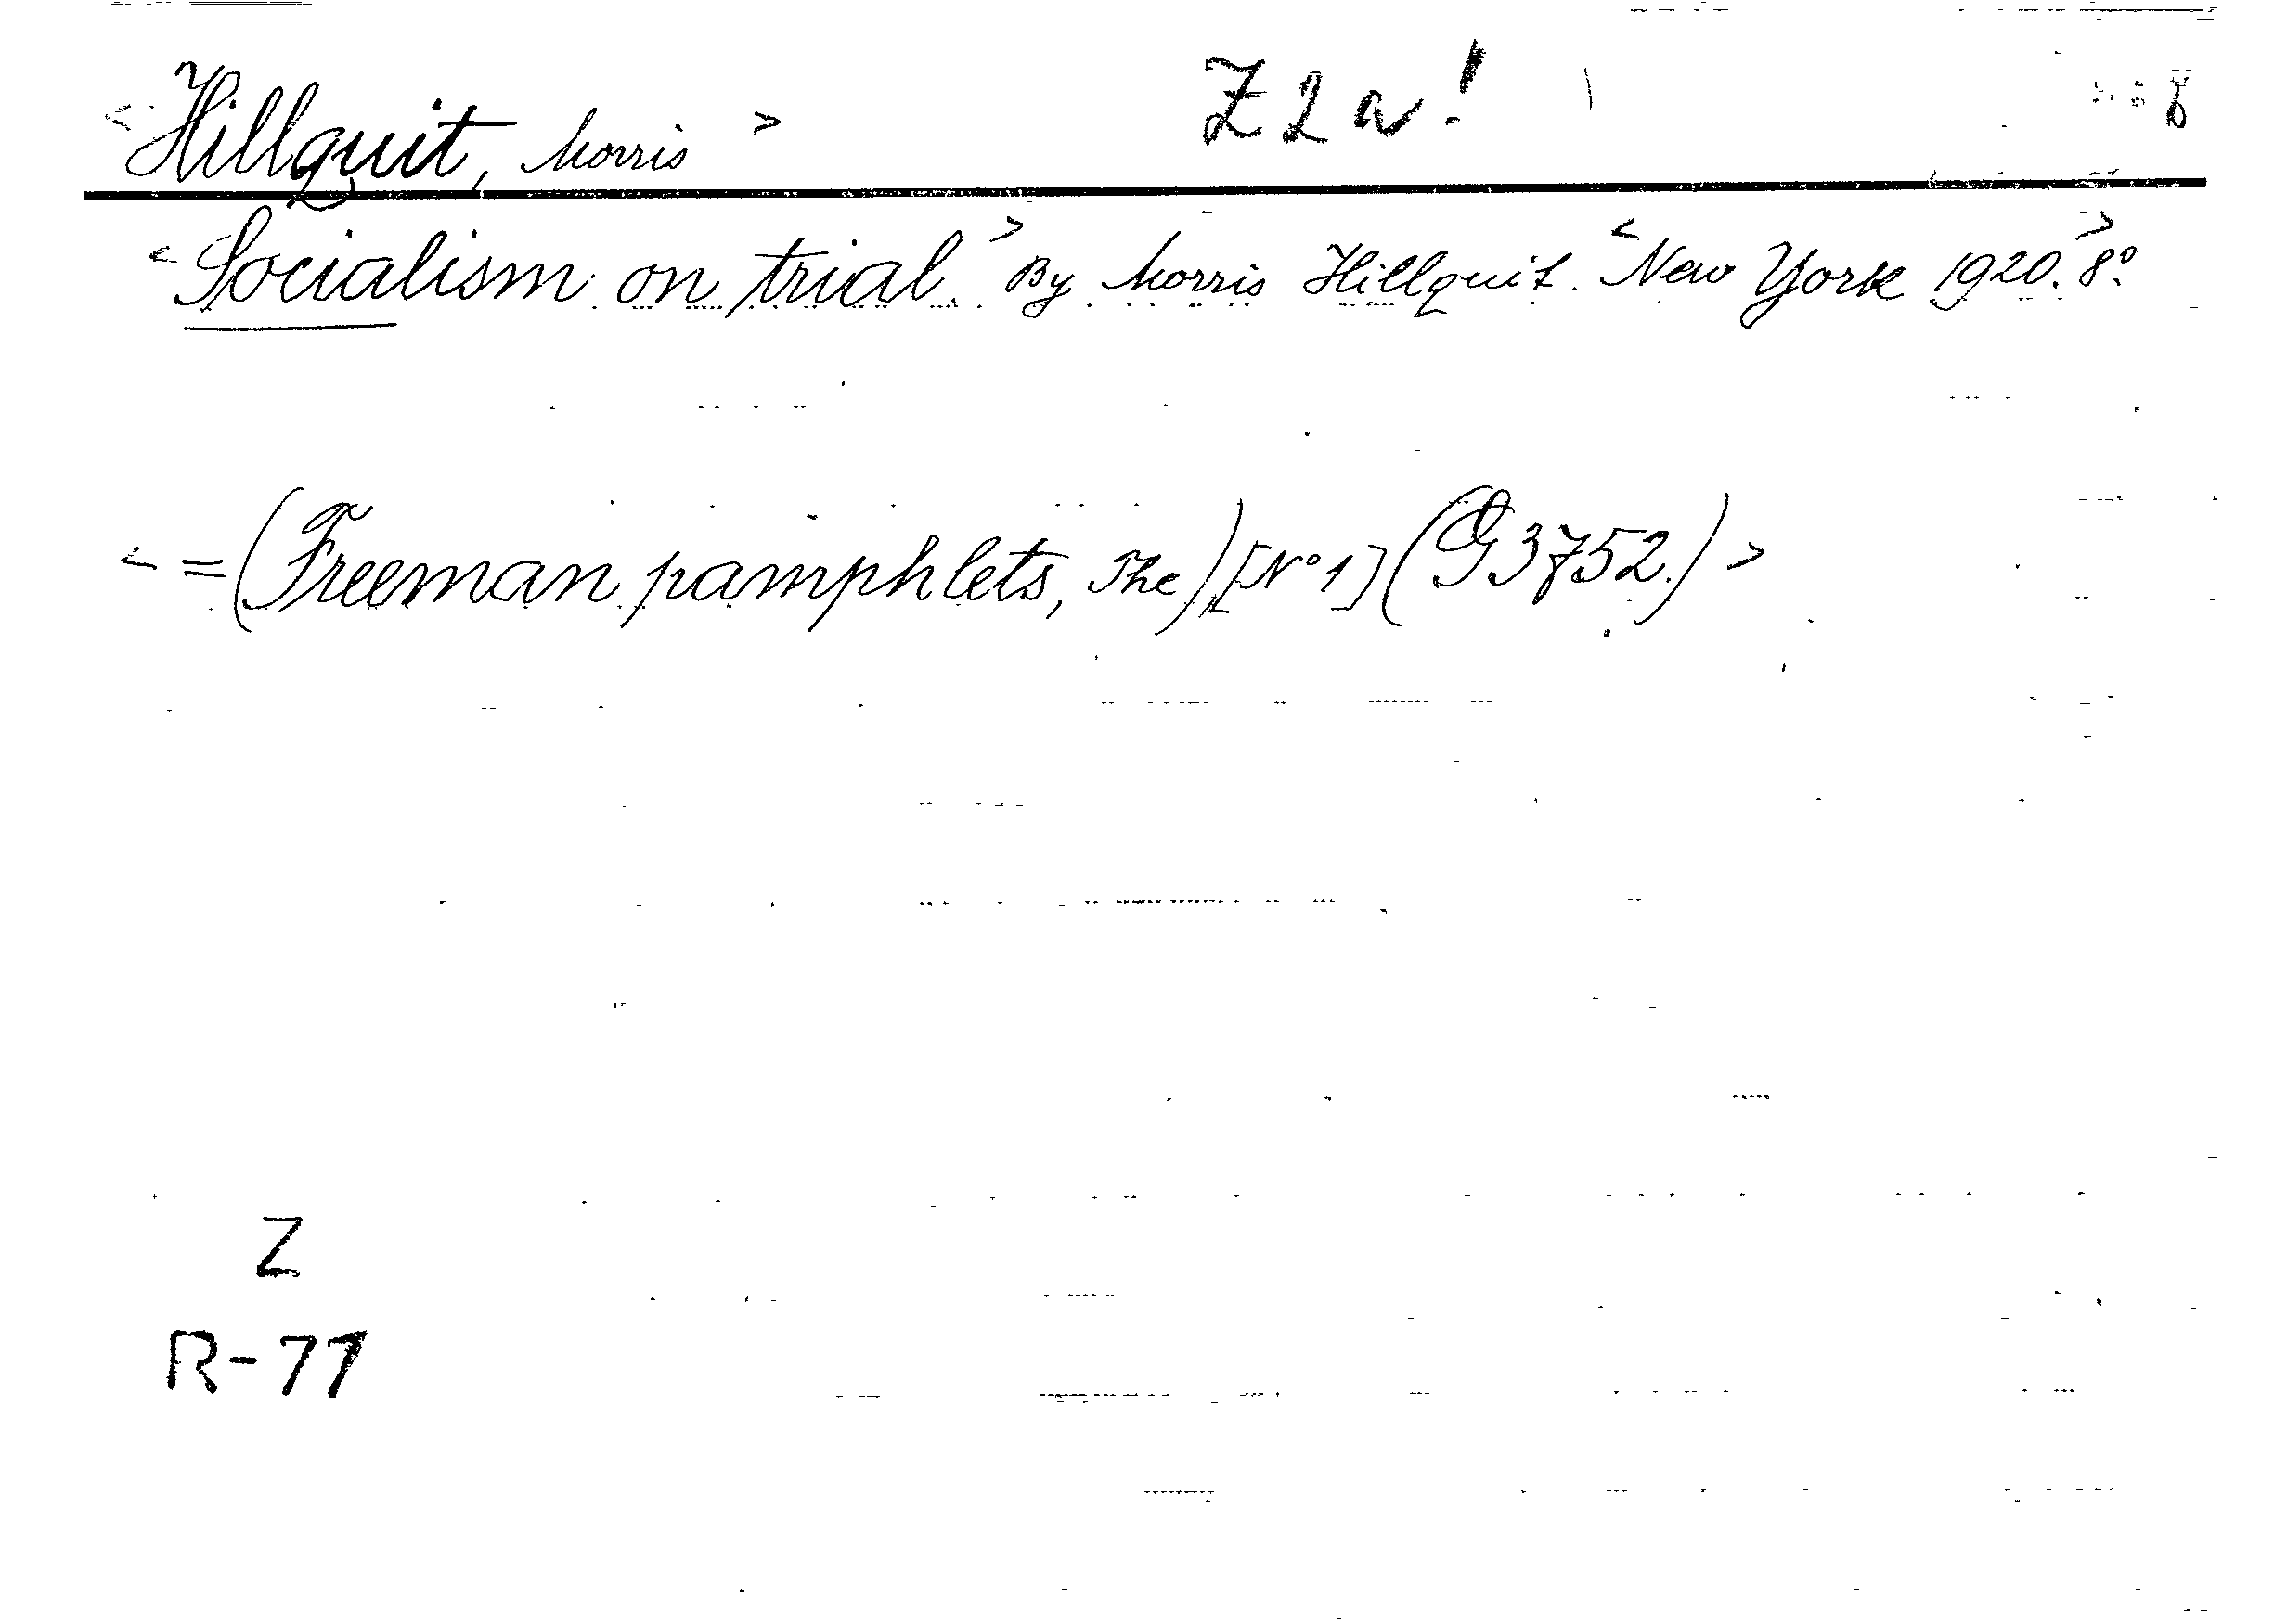 < Hillquit, Morris > Z 2 a!
< Socialism on trial. > By Morris Hillquit. < New York 1920. 8º. >
< = (Freeman pamphlets, The) [Nº 1] (G 3752.) >
Z
R-77